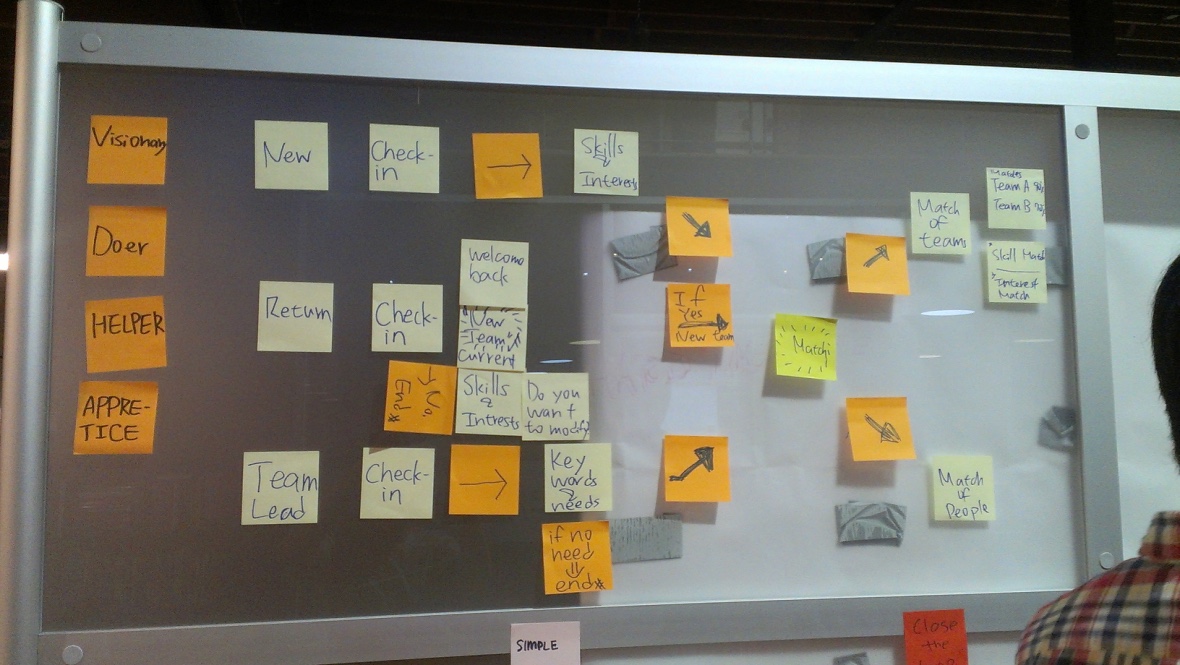 Visionary
Doer
HELPER
APPRE-
TICE
New
Check-
in
Skills
&
Interests
Return
Check-
in
welcome
back
New
Team?
Current
No,
End*
Skills
&
Intrests
Do you
want
to modify
Team
Lead
Check-
in
Key
words
&
needs
if no
need
end*
If
Yes
New team
Match
of
teams
Team A
Team B
Skill Match
Interest
Match
Match
of
People
SIMPLE
Close
the